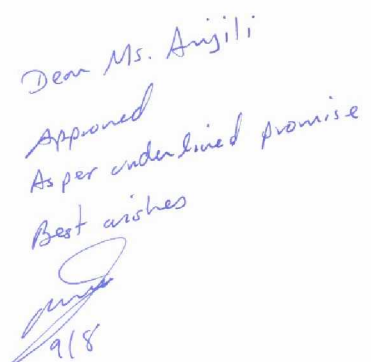 Dear Ms. Anjili
Approved
As per underlined promise
Best wishes
9/8